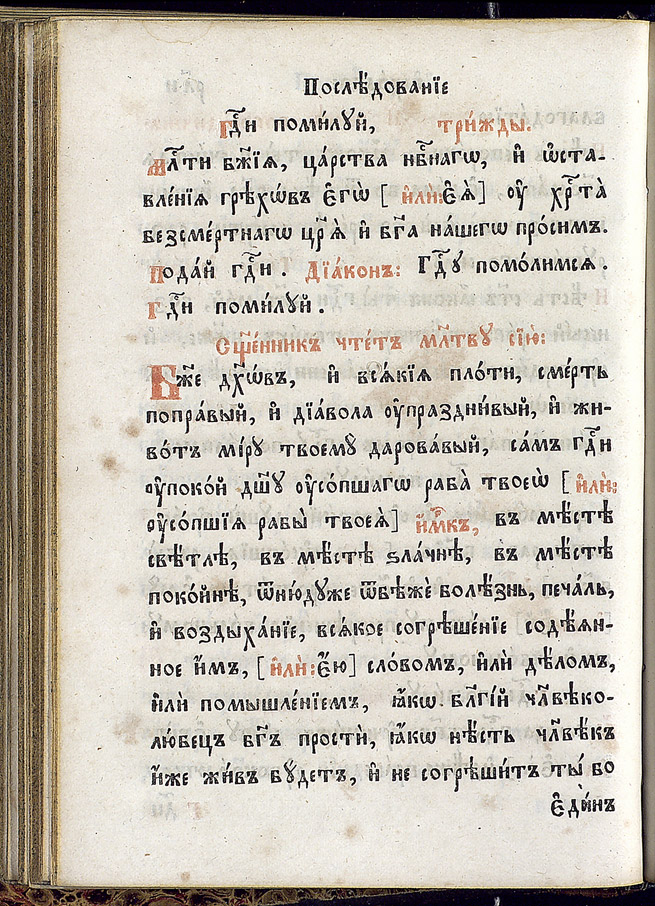 Послѣ́дованїе
гдⷭ҇и поми́лꙋй, три́жды.
млⷭ҇ти бж҃їѧ, ца́рства нбⷭ҇нагѡ, и҆ ѡ҆ста-
вле́нїѧ грѣхѡ́въ є҆гѡ̀ [ и҆лѝ: є҆ѧ̀ ] ᲂу҆ хрⷭ҇та̀
безсме́ртнагѡ цр҃ѧ̀ и҆ бг҃а на́шегѡ про́симъ.
пода́й гдⷭ҇и. Дїа́конъ: Гдⷭ҇ꙋ помо́лимсѧ.
гдⷭ҇и поми́лꙋй.
Сщ҃е́нникъ чте́тъ мл҃твꙋ сїю̀:
Бж҃е дх҃ѡ́въ, и҆ всѧ́кїѧ пло́ти, сме́рть
попра́вый, и҆ дїа́вола ᲂу҆праздни́вый, и҆ жи-
во́тъ мі́рꙋ твоемꙋ̀ дарова́вый, са́мъ гдⷭ҇и
ᲂу҆поко́й дꙋ́шꙋ ᲂу҆со́пшагѡ раба̀ твоегѡ̀ [ и҆лѝ:
ᲂу҆со́пшїѧ рабы̀ твоеѧ̀] и҆м҃къ, въ мѣ́стѣ
свѣ́тлѣ, въ мѣ́стѣ ѕла́чнѣ, въ мѣ́стѣ
поко́йнѣ, ѿню́дꙋже ѿбѣжѐ болѣ́знь, печа́ль,
и҆ воздыха́нїе, всѧ́кое согрѣше́нїе содѣ́ѧн-
ное и҆́мъ, [и҆лѝ: є҆́ю] сло́вомъ, и҆лѝ дѣ́ломъ,
и҆лѝ помышле́нїемъ, ꙗ҆́кѡ бл҃гі́й чл҃вѣко-
лю́бецъ бг҃ъ простѝ, ꙗ҆́кѡ нѣ́сть чл҃вѣ́къ
и҆́же жи́въ бꙋ́детъ, и҆ не согрѣши́тъ ты́ бо
є҆ди́нъ